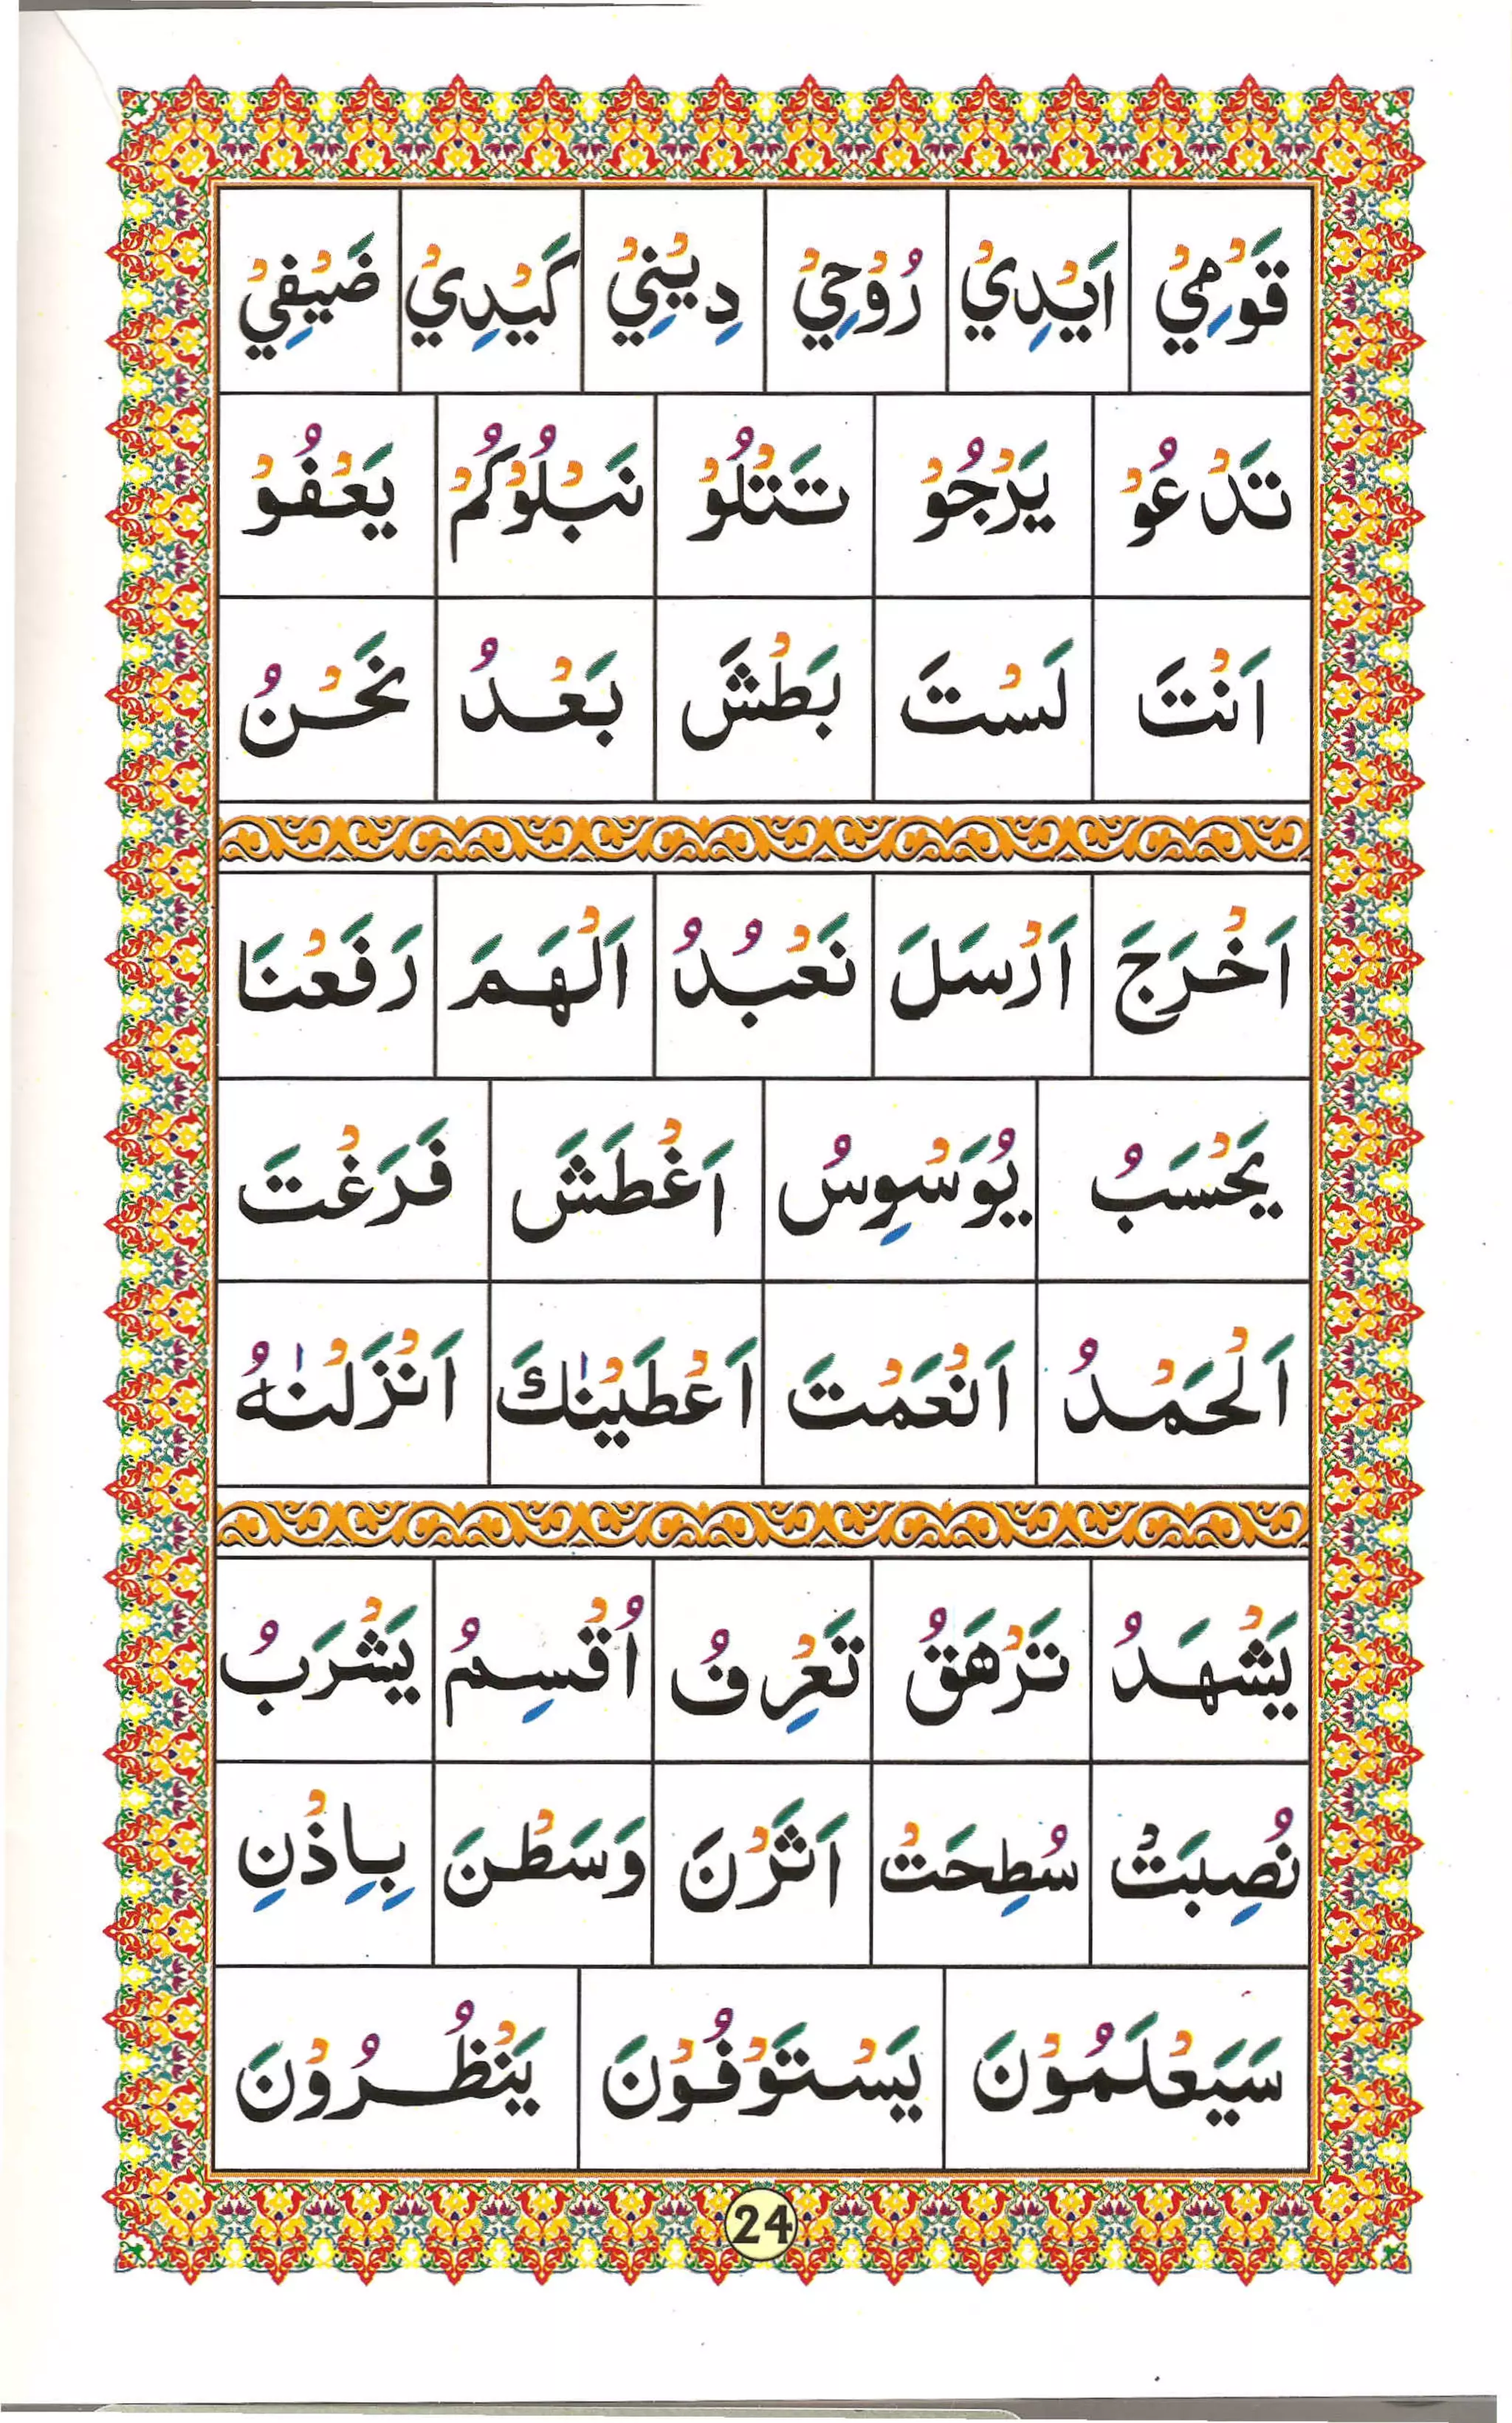 قَوْمِيْ اَيْدِيْ رُوْحِيْ دِيْنِيْ كَيْدِيْ ضَيْفِيْ
تَدْعُوْ يَرْجُوْ تَتْلُوْ نَبْلُوْكُمْ يَعْفُوْ
اَنْتَ لَسْتَ بَطْشَ بَعْدُ نَحْنُ
اَخْرَجَ اَرْسَلَ نَعْبُدُ اَلْهَمَ رَفَعْنَا
يَحْسَبُ يُوَسْوِسُ اَغْطَشَ فَرَغْتَ
اَلْحَمْدُ اَنْعَمْتَ اَعْطَيْنٰكَ اَنْزَلْنٰهُ
يَشْهَدُ تَزْهَقُ تَعْرِفُ اُقْسِمُ يَشْرَبُ
نُصِبَتْ سُطِحَتْ اَثَرْنَ وَسَطْنَ بِاِذْنِ
سَيَعْلَمُوْنَ يَسْتَوْفُوْنَ يَنْظُرُوْنَ
24